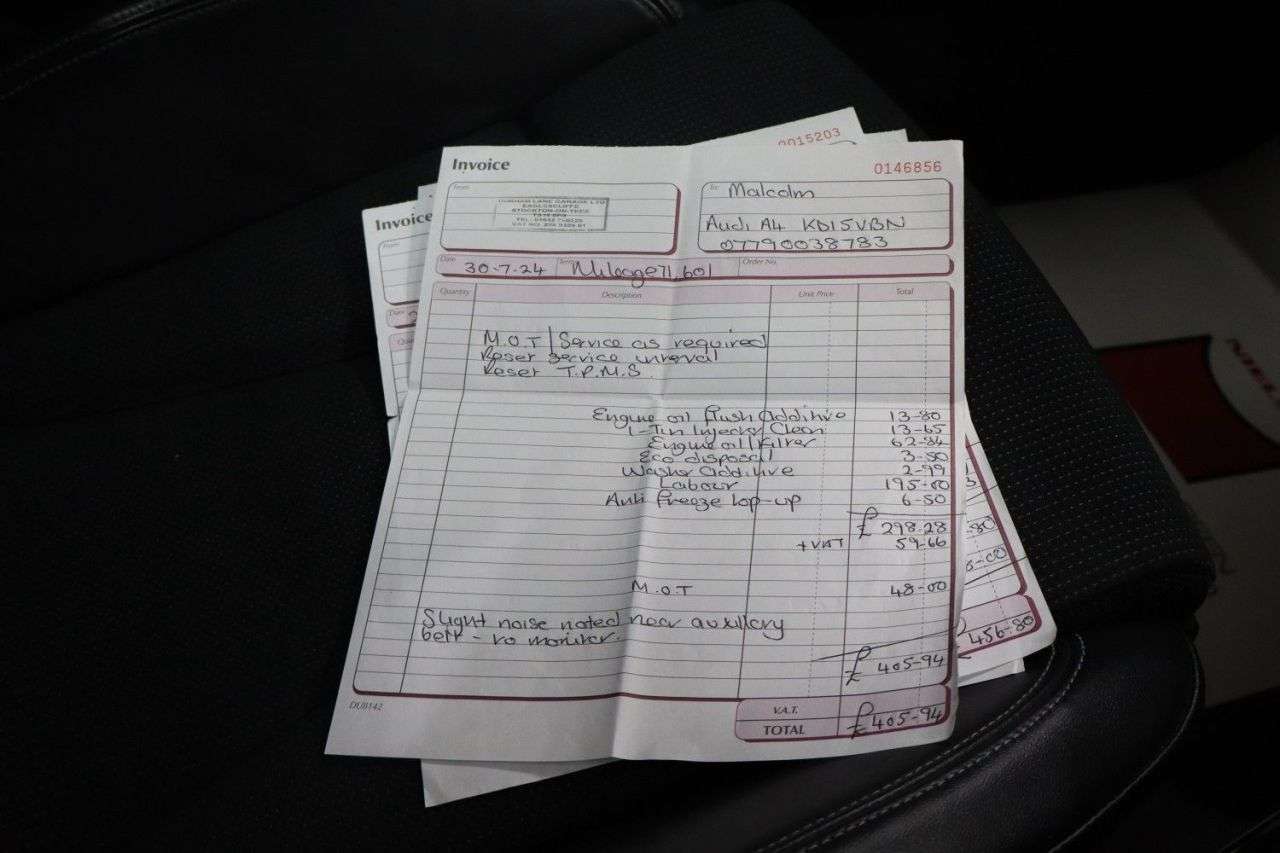 0015203
Invoice
0146856
From
To
Malcolm
DURHAM LANE GARAGE LTD
EAGLESCLIFFE
STOCKTON-ON-TEES
Audi A4 KD15VBN
07790038783
Date
30-7-24
Mileage 71,601
Order No.
Quantity
Description
Unit Price
Total
M.O.T / Service as required
Reset service interval
Reset T.P.M.S
Engine oil flush Additive 13-80
1-Tin Injector Clean 13-65
Engine oil / Filter 62-84
Eco disposal 3-50
Washer Additive 2-99
Labour 195-00
Anti freeze top-up 6-50
£ 298.28
+ VAT 59-66
M.O.T 48-00
Slight noise noted near auxillary
belt - to monitor.
£ 405-94
DUB142
V.A.T.
TOTAL £405-94
Invoice
From
Date
-80
456-80